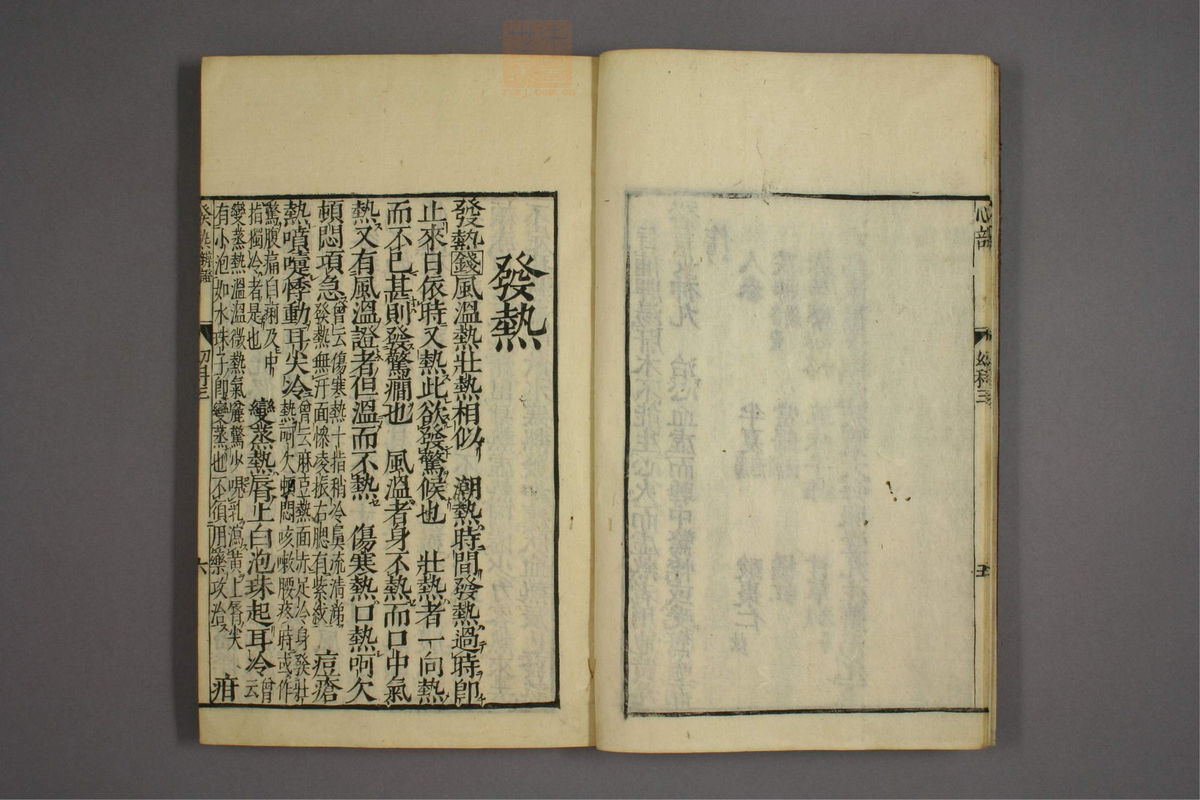 心部
幼科三
五
發熱
發熱錢風溫熱壯熱相似 潮熱時間發熱過時即
止來日依時又熱此欲發驚候也 壯熱者一向熱
而不已甚則發驚癎也 風溫者身不熱而口中氣
熱又有風溫證者但溫而不熱 傷寒熱口熱呵欠
頓悶項急曾云傷寒熱十指稍冷鼻流清涕
發熱無汗面慘凌振右腮有紫紋 痘瘡
熱噴嚏悸動耳尖冷曾云麻豆熱面赤足冷身發壯
熱呵欠頓悶咳嗽腰疼時或作
驚腹痛自痢及中
指獨冷者是也 變蒸熱唇上白泡珠起耳冷曾云
變蒸熱溫溫微熱氣麤驚少哯乳瀉黃上唇尖
有小泡如水珠子即變蒸也不須用藥攻治 疳
發熱辨證
幼科三
六